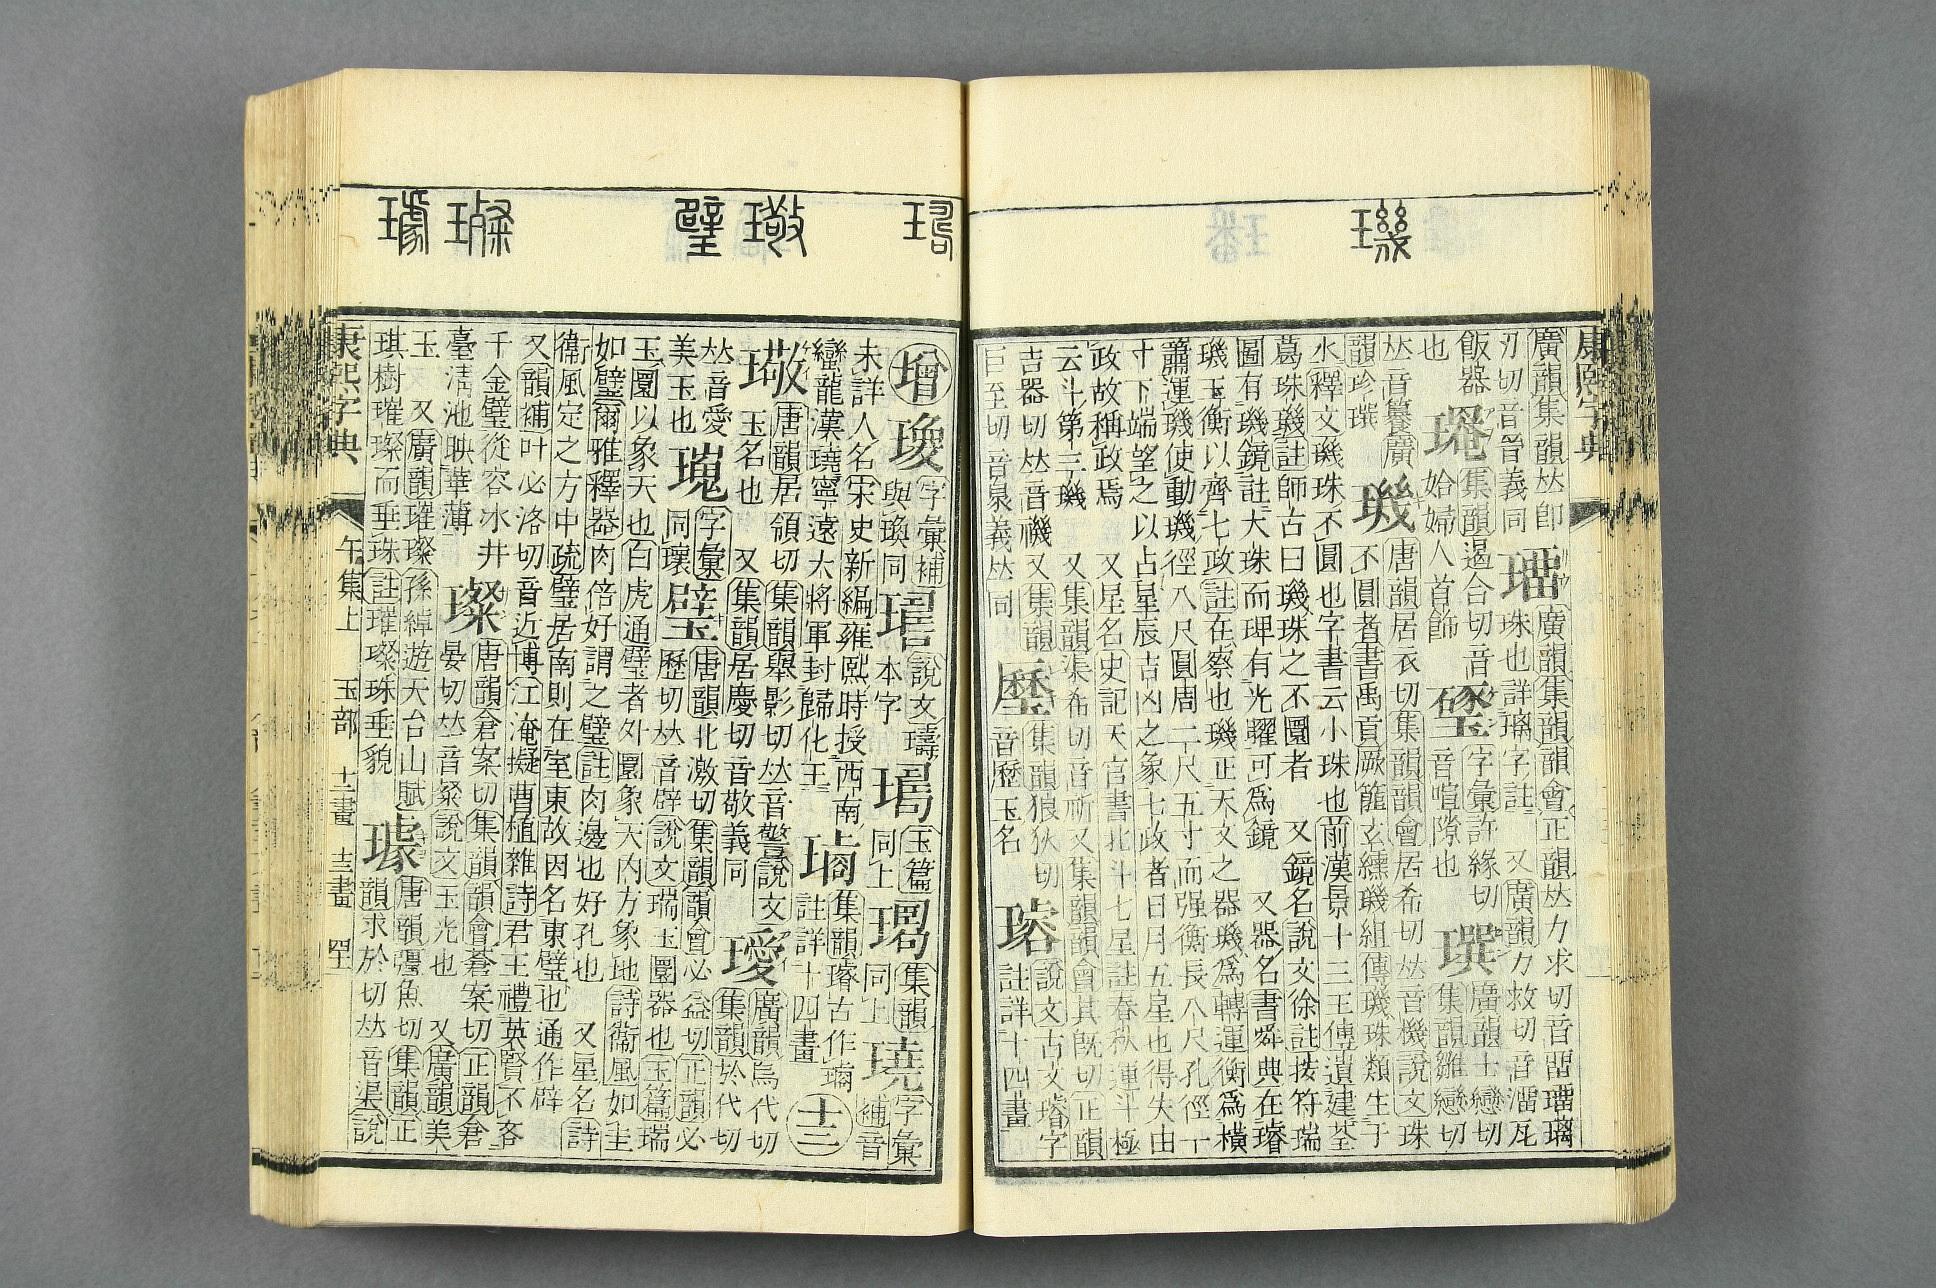 璣
康熙字典
廣韻集韻𠀤卽
刃切音晉義同
璢
廣韻集韻韻會正韻𠀤力求切音畱璢璃
珠也詳璃字註 又廣韻力救切音溜瓦
飯器
也
集韻遏合切音
姶婦人首飾
字彙許緣切
音喧隙也
廣韻士戀切
集韻雛戀切
𠀤音籑廣
韻珍撰
璣
唐韻居衣切集韻韻會居希切𠀤音機說文珠
不圓者書禹貢厥篚玄纁璣組傳璣珠類生于
水釋文璣珠不圓也字書云小珠也前漢景十三王傳遺建荃
葛珠璣註師古曰璣珠之不圜者 又鏡名說文徐註按符瑞
圖有璣鏡註大珠而琕有光曜可爲鏡 又器名書舜典在璿
璣玉衡以齊七政註在察也璣正天文之器璣爲轉運衡爲橫
簫運璣使動璣徑八尺圓周二尺五寸而强衡長八尺孔徑一
寸下端望之以占星辰吉凶之象七政者日月五星也得失由
政故稱政焉 又星名史記天官書北斗七星註春秋運斗極
云斗第三璣 又集韻渠希切音祈又集韻韻會其旣切正韻
吉器切𠀤音禨又集韻
巨至切音臮義𠀤同
集韻狼狄切
音歷玉名
說文古文璿字
註詳十四畫
璥 璧 璨 璩
增
字彙補
與瑍同
說文璹
本字
玉篇
同上
集韻
同上
字彙
補音
未詳人名宋史新編雍熙時授西南
蠻龍漢璄寧遠大將軍封歸化王
㻽
集韻璿古作㻽
註詳十四畫
十三
璥
唐韻居領切集韻舉影切𠀤音警說文
玉名也 又集韻居慶切音敬義同
璦
廣韻烏代切
集韻於代切
𠀤音愛
美玉也
字彙
同瓌
璧
唐韻北激切集韻韻會必益切正韻必
歷切𠀤音辟說文瑞玉圜器也玉篇瑞
玉圜以象天也白虎通璧者外圜象天內方象地詩衞風如圭
如璧爾雅釋器肉倍好謂之璧註肉邊也好孔也 又星名詩
衞風定之方中疏璧居南則在室東故因名東璧也通作辟
又韻補叶必洛切音近博江淹擬曹植雜詩君王禮英賢不吝
千金璧從容冰井
臺淸池映華薄
璨
唐韻倉案切集韻韻會蒼案切正韻倉
晏切𠀤音粲說文玉光也 又廣韻美
玉 又廣韻璀璨孫綽遊天台山賦
琪樹璀璨而垂珠註璀璨珠垂貌
璩
唐韻彊魚切集韻正
韻求於切𠀤音渠說
康熙字典 午集上 玉部 十二畫 十三畫